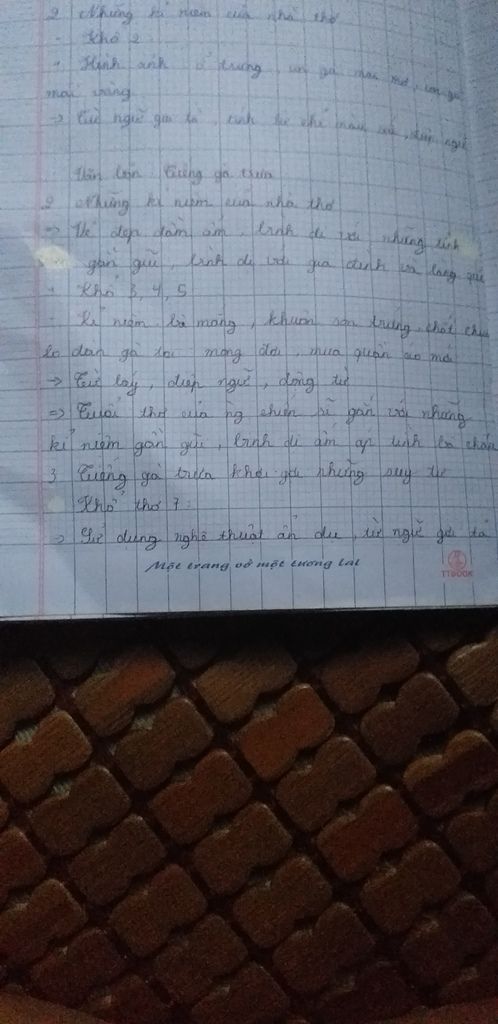 2 Những kỉ niệm của nhà thơ
- Khổ 2
- Hình ảnh ổ trứng, con gà mái mơ, con gà
mái vàng
-> Từ ngữ gợi tả, tính từ chỉ màu sắc, điệp ngữ
Văn bản: Tiếng gà trưa
2 Những kỉ niệm của nhà thơ
-> Vẻ đẹp đầm ấm, bình dị với những tình
gần gũi, bình dị với gia đình và làng quê
- Khổ 3, 4, 5
- Kỉ niệm bà mắng, khum soi trứng, chắt chiu
lo đàn gà toi mong đợi, mua quần áo mới
-> Từ láy, điệp ngữ, động từ
=> Tuổi thơ của ng chiến sĩ gắn với những
kỉ niệm gần gũi, bình dị ấm áp tình bà cháu
3 Tiếng gà trưa khơi gợi những suy tư
Khổ thơ 7:
-> Sử dụng nghệ thuật ẩn dụ, từ ngữ gợi tả
Một trang vở một tương lai
TTBOOK